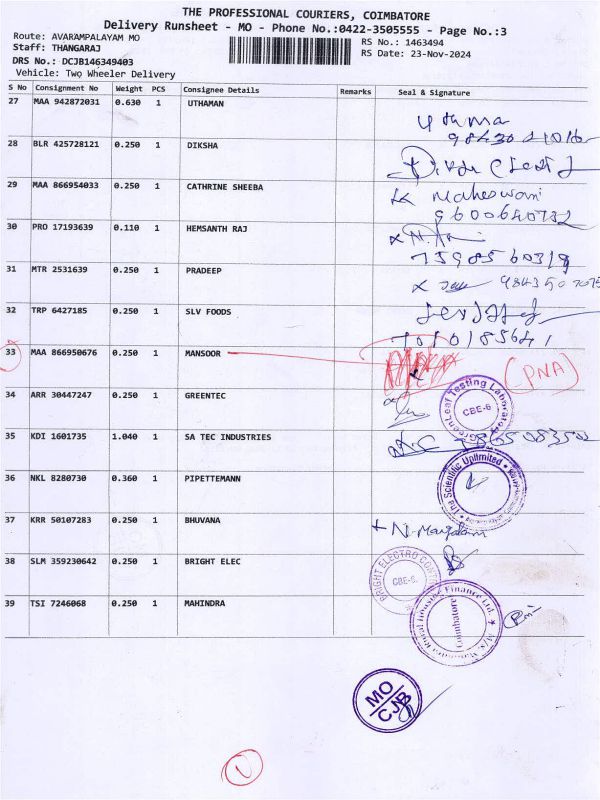 THE PROFESSIONAL COURIERS, COIMBATORE
Delivery Runsheet - MO - Phone No.:0422-3505555 - Page No.:3
Route: AVARAMPALAYAM MO RS No.: 1463494
Staff: THANGARAJ RS Date: 23-Nov-2024
DRS No.: DCJB146349403
Vehicle: Two Wheeler Delivery
S No Consignment No Weight PCS Consignee Details Remarks Seal & Signature
27 MAA 942872031 0.630 1 UTHAMAN
28 BLR 425728121 0.250 1 DIKSHA
29 MAA 866954033 0.250 1 CATHRINE SHEEBA Maheswari
9600640732
30 PRO 17193639 0.110 1 HEMSANTH RAJ
7598560319
31 MTR 2531639 0.250 1 PRADEEP
32 TRP 6427185 0.250 1 SLV FOODS
7010185641
33 MAA 866950676 0.250 1 MANSOOR (PNA)
34 ARR 30447247 0.250 1 GREENTEC GreenLeaf Testing Laboratory CBE-6
35 KDI 1601735 1.040 1 SA TEC INDUSTRIES
36 NKL 8280730 0.360 1 PIPETTEMANN Scientific Unlimited
37 KRR 50107283 0.250 1 BHUVANA
38 SLM 359230642 0.250 1 BRIGHT ELEC BRIGHT ELECTRO CBE-6.
39 TSI 7246068 0.250 1 MAHINDRA Rural Housing Finance Ltd. Coimbatore
MO
CJB